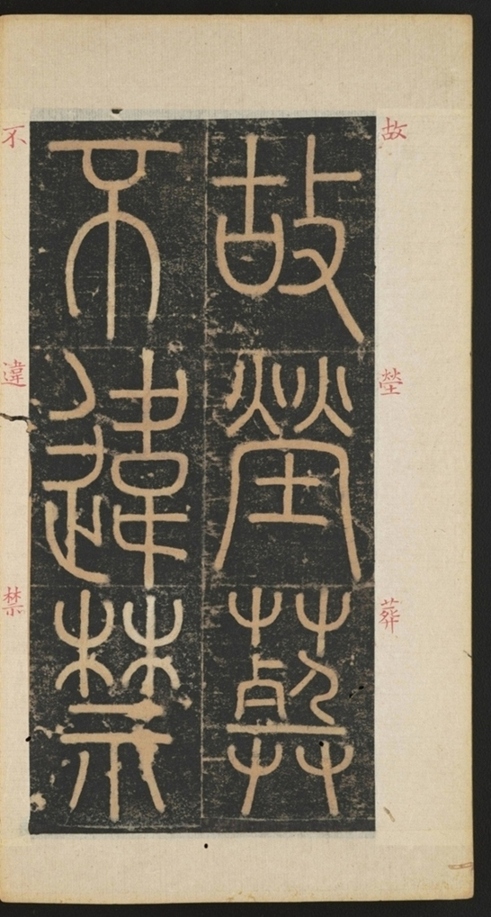 故塋葬
故塋葬
不違禁
不違禁